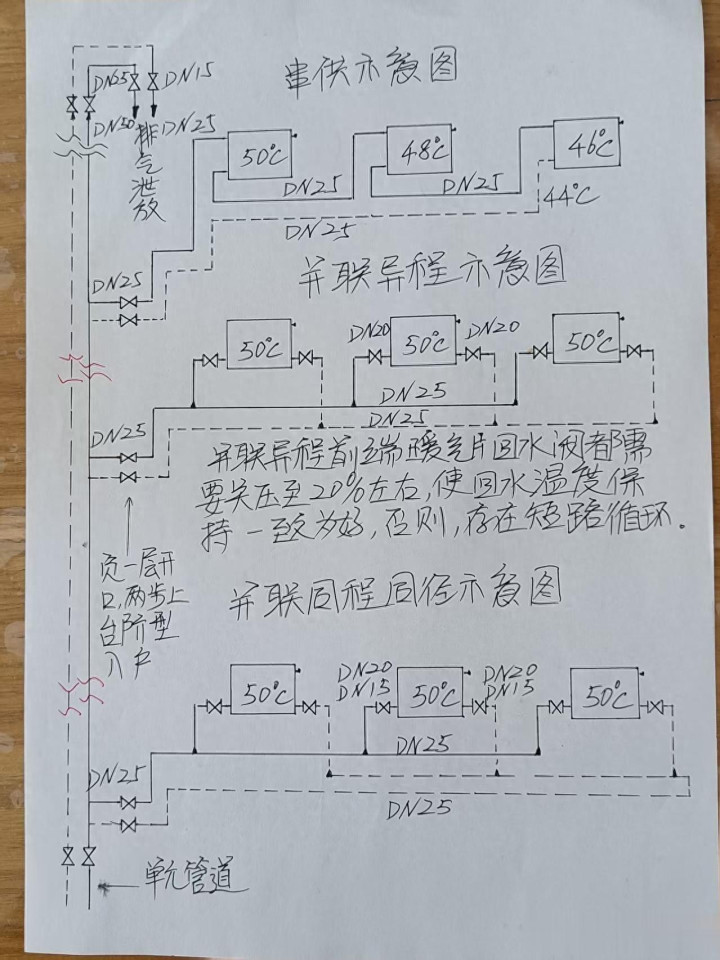 串供示意图
DN65
DN15
DN50
DN25
排气泄放
50℃
48℃
46℃
DN25
DN25
44℃
DN25
DN25
并联异程示意图
50℃
DN20
50℃
DN20
50℃
DN25
DN25
DN25
并联异程前端暖气片回水阀都需
要关压至20%左右,使回水温度保
持一致为好,否则,存在短路循环.
负一层开
口,两步上
台阶型
入户
并联同程同径示意图
50℃
DN20
DN15
50℃
DN20
DN15
50℃
DN25
DN25
DN25
单元管道